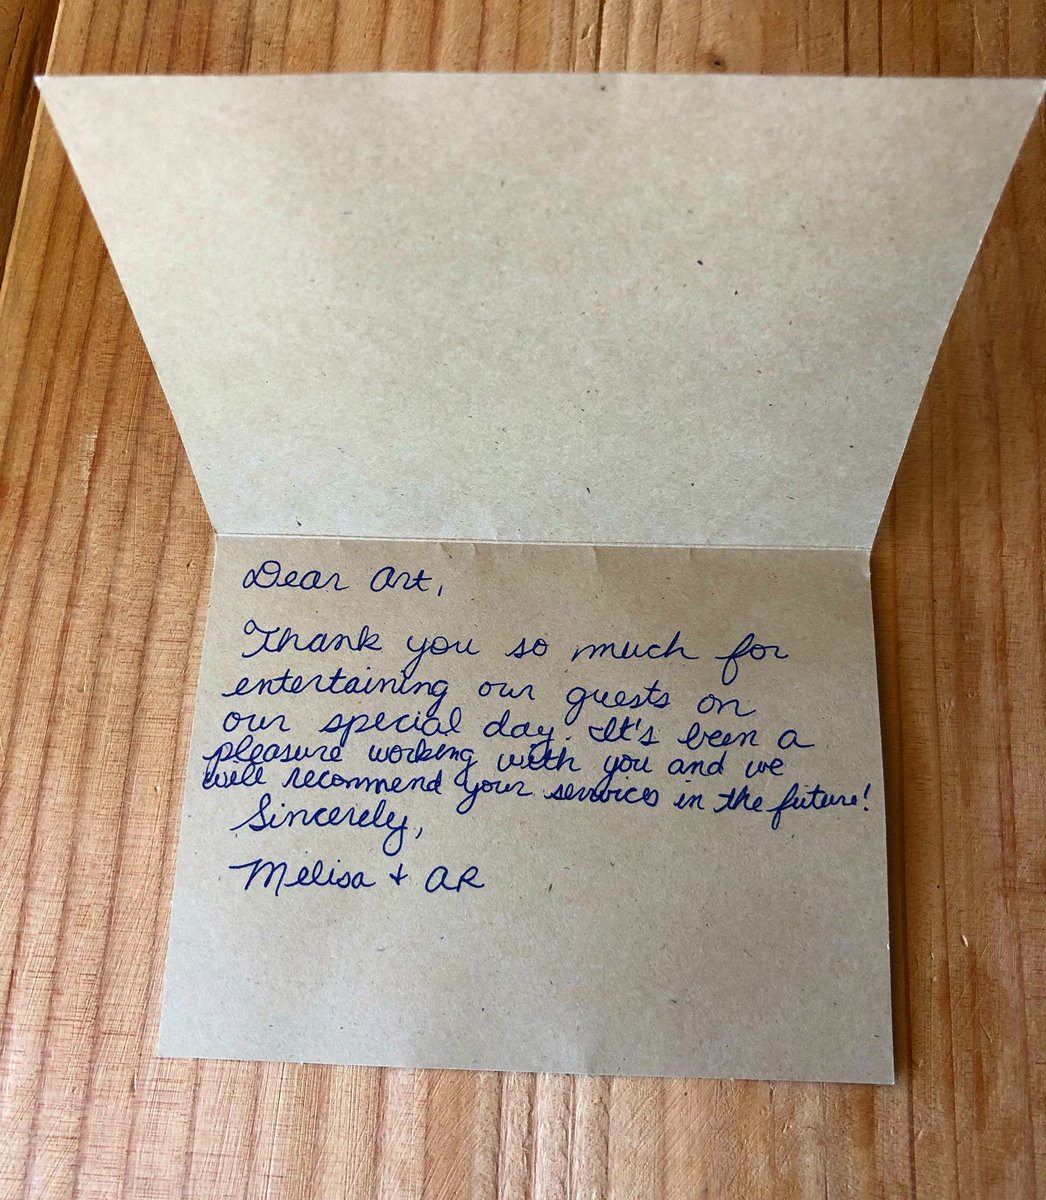 Dear Art,
Thank you so much for
entertaining our guests on
our special day. It's been a
pleasure working with you and we
will recommend your services in the future!
Sincerely,
Melisa + AR